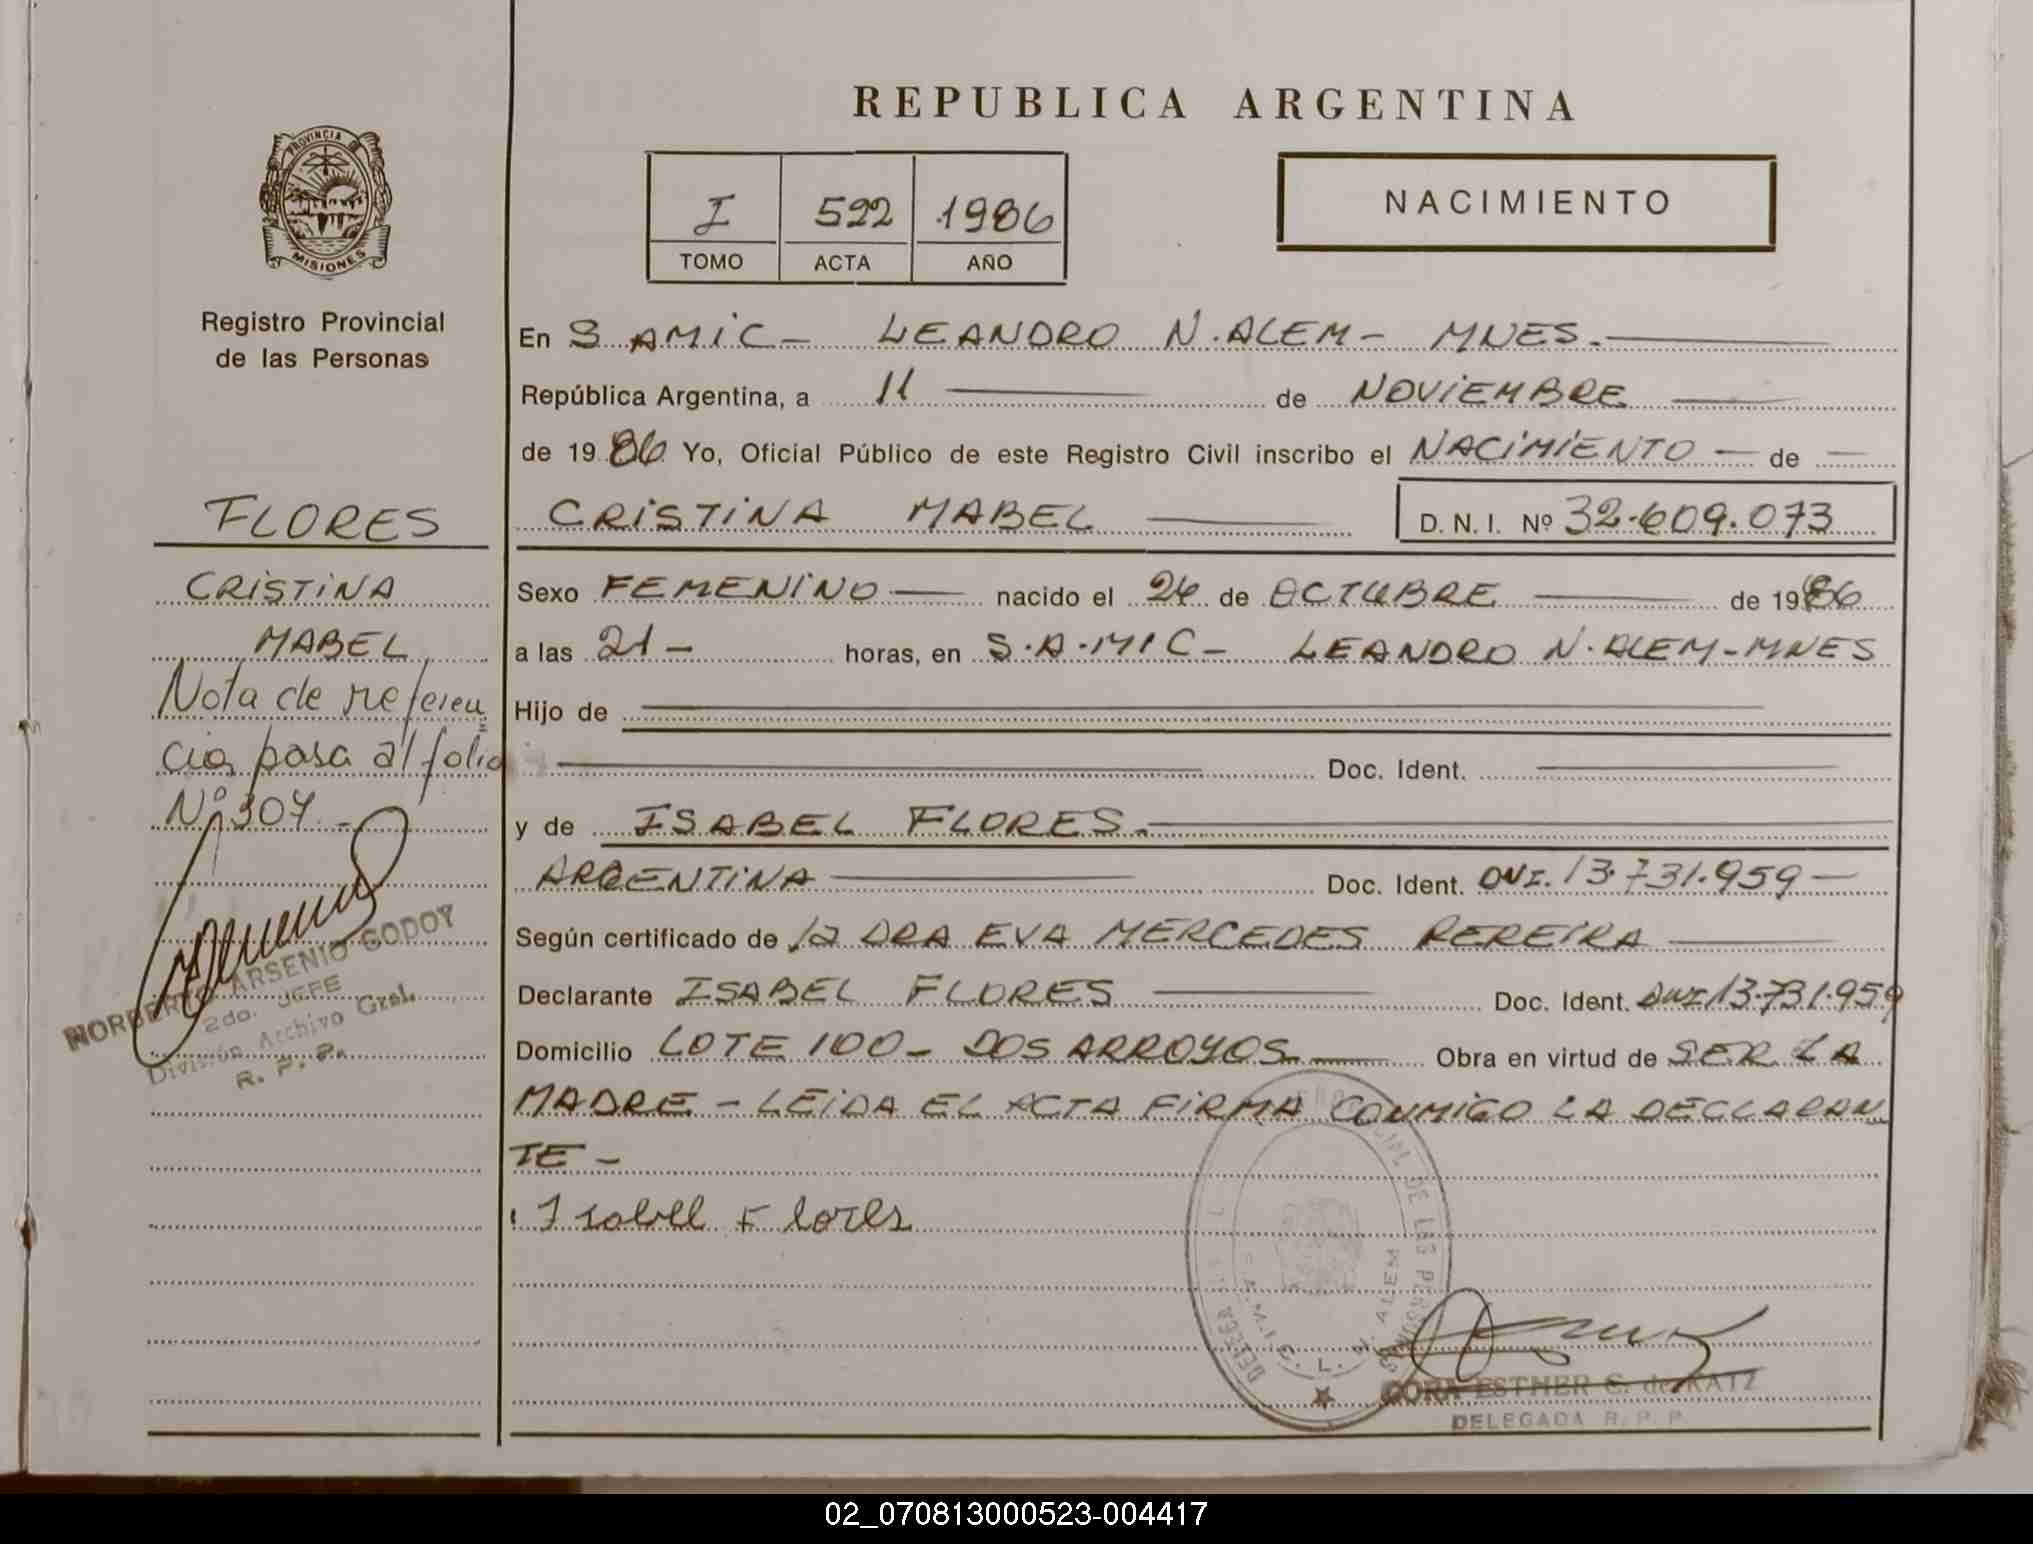 REPUBLICA ARGENTINA
PROVINCIA DE
MISIONES
Registro Provincial
de las Personas
I 522 1986
TOMO ACTA AÑO
NACIMIENTO
En S.AMIC - LEANDRO N. ALEM - MNES.
República Argentina, a 11 de NOVIEMBRE
de 1986 Yo, Oficial Público de este Registro Civil inscribo el NACIMIENTO - de -
CRISTINA MABEL D. N. I. Nº 32.609.073
Sexo FEMENINO nacido el de OCTUBRE de 1986
a las 21 - horas, en S.A.MIC - LEANDRO N. ALEM - MNES
Hijo de
Doc. Ident.
y de ISABEL FLORES.
ARGENTINA Doc. Ident. DNI. 13.731.959 -
Según certificado de la DRA EVA MERCEDES PEREIRA
Declarante ISABEL FLORES Doc. Ident. DNI 13.731.959
Domicilio LOTE 100 - DOS ARROYOS Obra en virtud de SER LA
MADRE - LEIDA EL ACTA FIRMA CONMIGO LA DECLARAN
TE -
Isabel Flores
FLORES
CRISTINA
MABEL
Nota de referen
cia pasa al folio
Nº 307 -
NORBERTO ARSENIO GODOY
2do. JEFE
División Archivo Gral.
R. P. P.
DE LAS PERSONAS
L. N. ALEM
CORA ESTHER C. de KATZ
DELEGADA R. P. P.
02_070813000523-004417